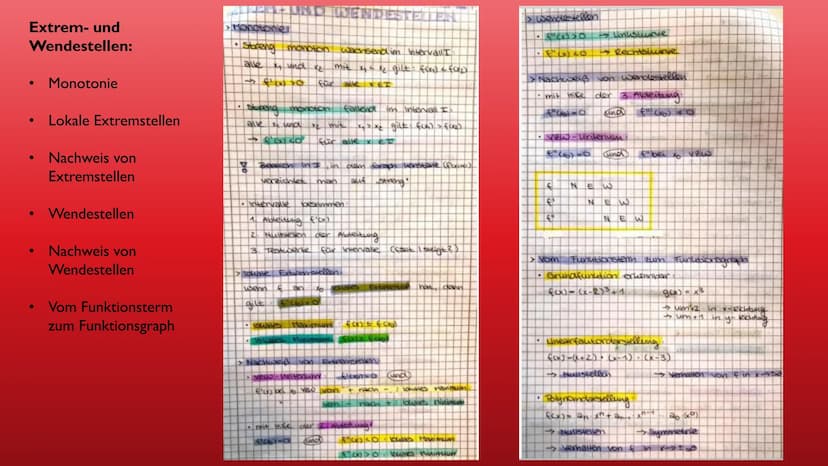 Extrem- und
Wendestellen:
• Monotonie
• Lokale Extremstellen
• Nachweis von
Extremstellen
• Wendestellen
• Nachweis von
Wendestellen
• Vom Funktionsterm
zum Funktionsgraph
EXTREM- UND WENDESTELLEN
> Monotonie
• Streng monoton wachsend im Intervall I:
alle x₁ und x₂ mit x₁ < x₂ gilt: f(x₁) < f(x₂)
→ f'(x) > 0 für alle x ∈ I
• Streng monoton fallend im Intervall I:
alle x₁ und x₂ mit x₁ > x₂ gilt: f(x₁) > f(x₂)
→ f'(x) < 0 für alle x ∈ I
Bereich in I, in dem Graph konstant
verzichtet man auf "streng"
• Intervalle bestimmen
1. Ableitung f'(x)
2. Nullstellen der Ableitung
3. Testwerte für Intervalle (fällt / steigt?)
> Lokale Extremstellen
wenn f an x₀ hat, dann
gilt: f'(x₀) = 0
• lokales Maximum
• lokales Minimum
> Nachweis von Extremstellen
• VZW-Kriterium: f'(x₀) = 0 und
f'(x) bei x₀ VZW von + nach - / lokales Maximum
von - nach + / lokales Minimum
• mit Hilfe der 2. Ableitung:
f'(x₀) = 0 und f''(x) < 0 lokales Maximum
f''(x) > 0 lokales Minimum
> Wendestellen
• f''(x) > 0 → Linkskurve
• f''(x) < 0 → Rechtskurve
> Nachweis von Wendestellen
• mit Hilfe der 3. Ableitung:
f''(x₀) = 0 und f'''(x₀) ≠ 0
• VZW-Kriterium:
f''(x₀) = 0 und f'' bei x₀ VZW
f N E W
f' N E W
f'' N E W
> Vom Funktionsterm zum Funktionsgraph
• Grundfunktion erkennbar:
f(x) = (x-2)³ + 1 g(x) = x³
→ um +2 in x-Richtung
→ um +1 in y-Richtung
• Linearfaktordarstellung
f(x) = (x+2) · (x-1) · (x-3)
→ Nullstellen → Verhalten von f in x→±∞
• Polynomdarstellung
→ Nullstellen → Symmetrie
→ Verhalten von f in x→±∞